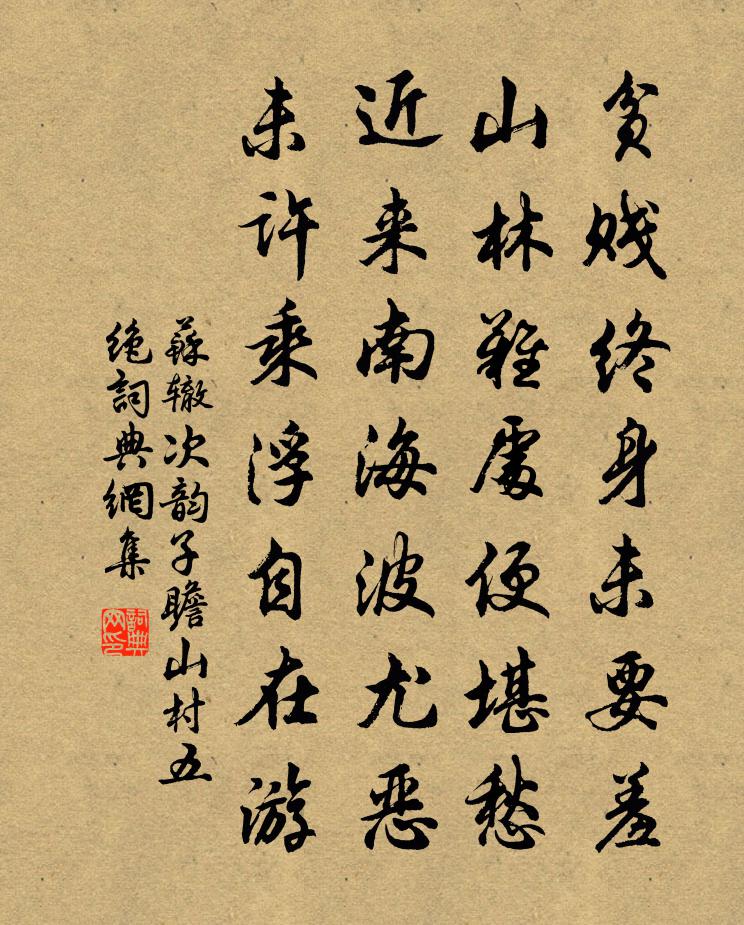 贫贱终身未要羞
山林难處便堪愁
近来南海波尤恶
未许乘浮自在游
蘇辙次韵子瞻山村五
绝詞典網集
詞典
网印